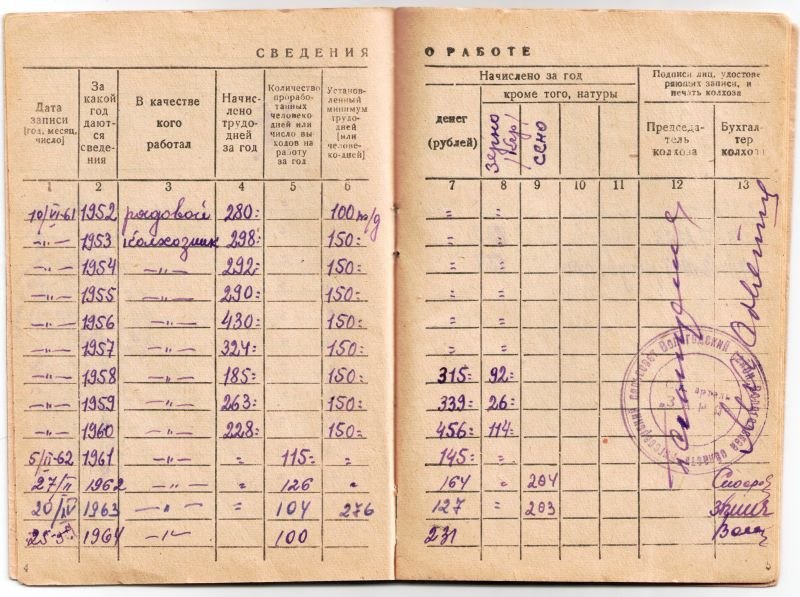 СВЕДЕНИЯ О РАБОТЕ
Дата записи [год, месяц, число]
За какой год даются сведения
В качестве кого работал
Начислено трудодней за год
Количество проработанных человекодней или число выходов на работу за год
Установленный минимум трудодней [или человеко-дней]
Начислено за год
денег (рублей)
кроме того, натуры
зерно
сено
Подписи лиц, удостоверяющих записи, и печать колхоза
Председатель колхоза
Бухгалтер колхоза
1 2 3 4 5 6 7 8 9 10 11 12 13
10/VI-61 1952 рядовой 280= 100 т/д =
—"— 1953 колхозник 298= 150= =
—"— 1954 —"— 292= 150= =
—"— 1955 —"— 290= 150= =
—"— 1956 —"— 430= 150= =
—"— 1957 —"— 324= 150= =
—"— 1958 —"— 185= 150= 315= 92=
—"— 1959 —"— 263= 150= 339= 26=
—"— 1960 —"— 228= 150= 456= 114=
5/II-62 1961 —"— = 115= = 145= =
27/II 1962 —"— = 126 = 164 = 204
20/IV 1963 —"— = 104 276 127 = 203
1964 —"— 100 231
4
5